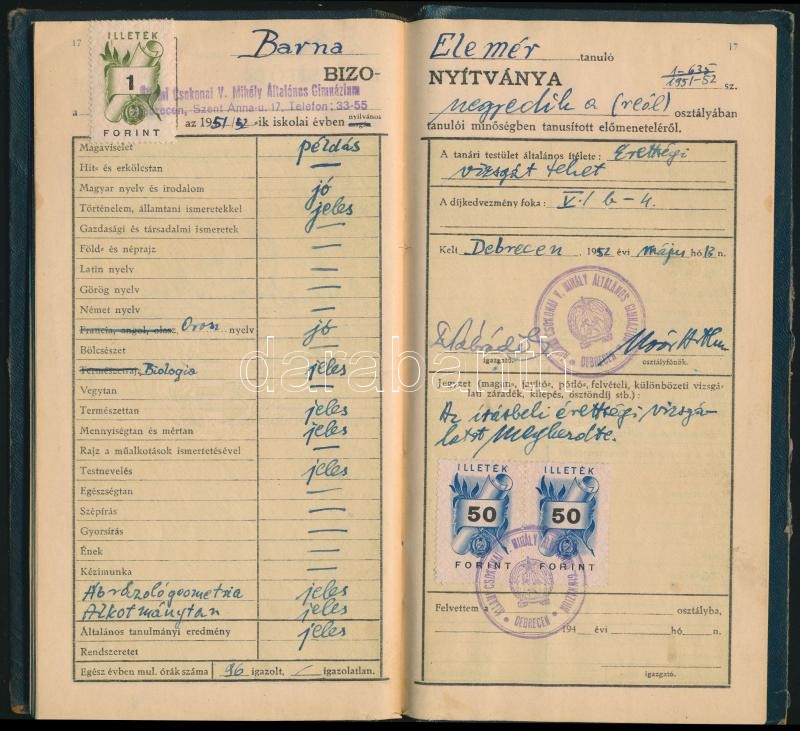 17
ILLETÉK
1
FORINT
Barna
BIZO-
Csokonai V. Mihály Általános Gimnázium
Debrecen, Szent Anna-u. 17, Telefon: 33-55
a
az 1951/52-ik iskolai évben nyilvános
Magaviselet példás
Hit- és erkölcstan —
Magyar nyelv és irodalom jó
Történelem, államtani ismeretekkel jeles
Gazdasági és társadalmi ismeretek —
Föld- és néprajz —
Latin nyelv —
Görög nyelv —
Német nyelv —
Francia, angol, olasz, Orosz nyelv jó
Bölcsészet —
Természetrajz, Biologia jeles
Vegytan —
Természettan jeles
Mennyiségtan és mértan jeles
Rajz a műalkotások ismertetésével —
Testnevelés jeles
Egészségtan —
Szépírás —
Gyorsírás —
Ének —
Kézimunka —
Ábrázológeometria jeles
Alkotmánytan jeles
Általános tanulmányi eredmény jeles
Rendszeretet
Egész évben mul. órák száma 96 igazolt, / igazolatlan.
17
Elemér tanuló
NYÍTVÁNYA
1-635
1951-52 sz.
negyedik a (reál) osztályában
tanulói minőségben tanusított előmeneteléről.
A tanári testület általános ítélete: Érettségi
vizsgát tehet
A díjkedvezmény foka: V./ b-4.
Kelt Debrecen, 1952 évi május hó 13 n.
CSOKONAI V. MIHÁLY ÁLTALÁNOS GIMNÁZIUM
DEBRECEN
igazgató.
osztályfőnök.
Jegyzet (magán-, javító-, pótló-, felvételi, különbözeti vizsgá-
latan záradék, kilépés, ösztöndíj stb.):
Az írásbeli érettségi vizsgá-
latot megkezdte.
ILLETÉK
50
FORINT
ILLETÉK
50
FORINT
CSOKONAI V. MIHÁLY
DEBRECEN
Felvettem a osztályba,
194 évi hó n.
igazgató.
darabanth